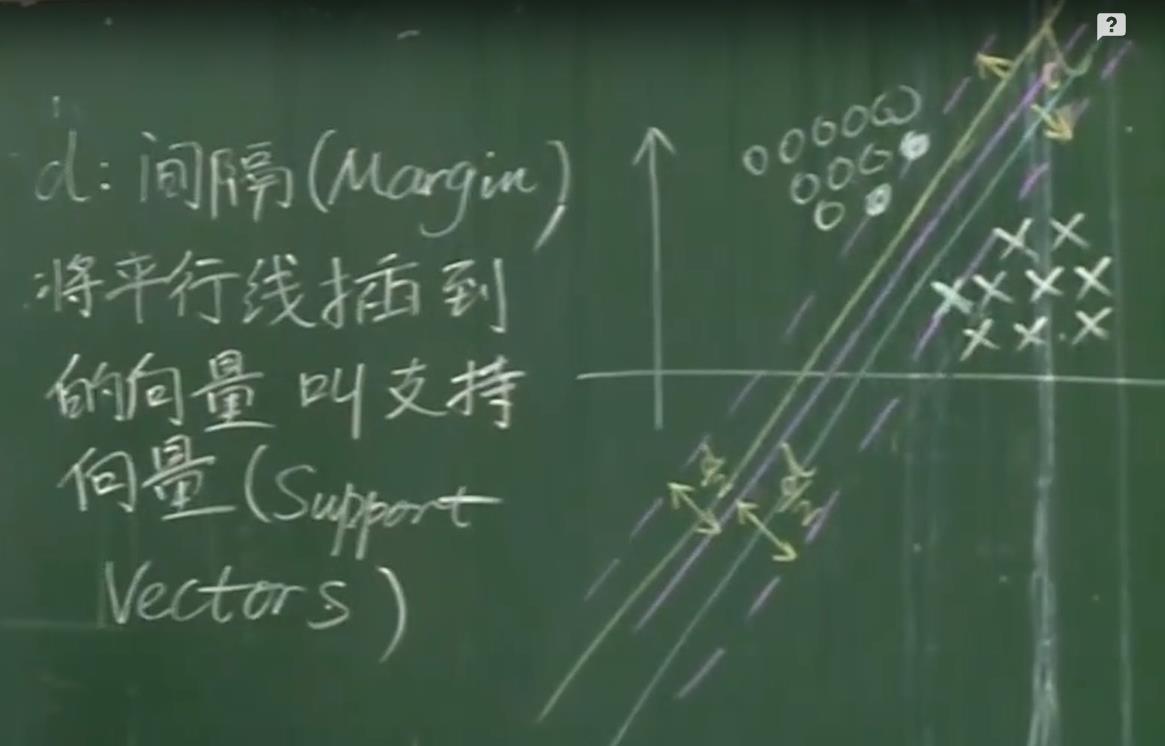 d: 间隔(Margin)
将平行线插到
的向量 叫支持
向量(Support
Vectors)
d/2
d/2
?